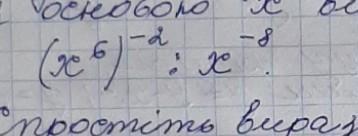 основою x
(x⁶)⁻² : x⁻⁸.
простіть вираз